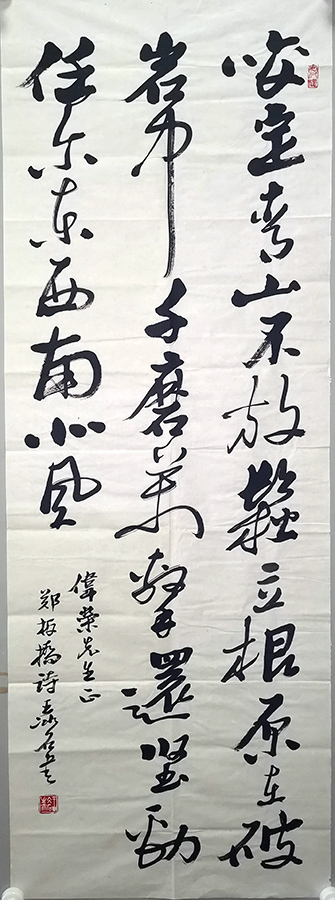 咬定青山不放鬆立根原在破
岩中千磨萬擊還坚勁
任尔东西南北风
偉榮先生正
郑板橋詩